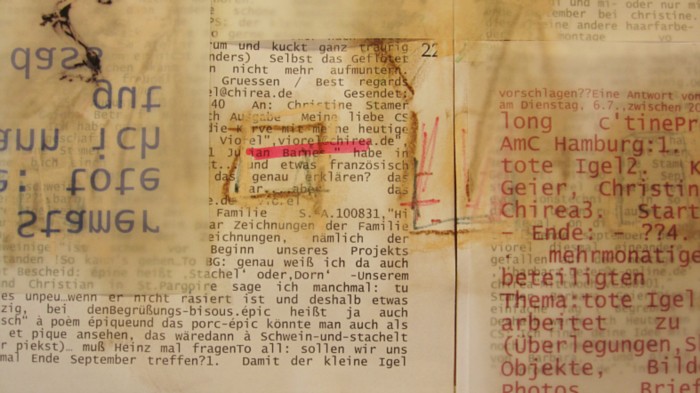 dass
gut
ann ich
e: tote
Stamer
um und kuckt ganz traurig
nders) Selbst das Geflöter
n nicht mehr aufmuntern.
Gruessen / Best regards
el@chirea.de" Gesendet:
40 An: Christine Stamer
ch Aufgabe Meine liebe CS
die Kerve mit meine heutige
Viorel",viorel@chirea.de"
l ju ian Barne " habe in
und etwas französisch
das genau erklären? das
ar... aber das
e.du
Familie S.A.100831,"Hi
ar Zeichnungen der Familie
eichnungen, nämlich der
Beginn unseres Projekts
BG: genau weiß ich da auch
Bescheid: épine heißt ‚Stachel' oder‚Dorn' -Unserem
und Christian in St.Pargoire sage ich manchmal: tu
es unpeu…wenn er nicht rasiert ist und deshalb etwas
zig, bei denBegrüßungs-bisous.épic heißt ja auch
sch" à poèm épiqueund das porc-épic könnte man auch als
et pique ansehen, das wäredann à Schwein-und-stachelt
r piekst)… muß Heinz mal fragenTo all: sollen wir uns
mal Ende September treffen?1. Damit der kleine Igel
22
und mi- oder nur mi
ember bei christine.
ne andere haarfarbe-
montage vo
vorschlagen??Eine Antwort von
am Dienstag, 6.7.,zwischen 20
long c'tinePr
AmC Hamburg:1.
tote Igel2. K
Geier, Christin
Chirea3. Start
- Ende: ??4.
mehrmonatige
beteiligten
Thema:tote Igel
arbeitet zu
(Überlegungen,Sk
Objekte, Bilde
Photos Brief